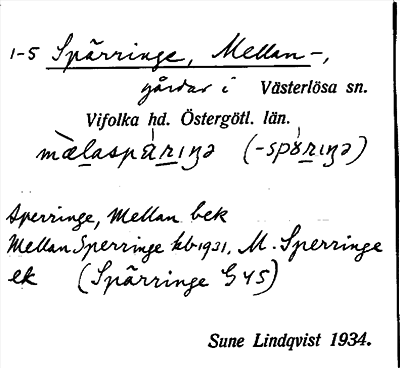 1-5 Spärringe, Mellan-,
gårdar i Västerlösa sn.
Vifolka hd. Östergötl. län.
mælaspàrıŋə (-spɤ̀rıŋə)
Sperringe, Mellan bek
Mellan Sperringe kb 1931, M. Sperringe
ek (Spärringe G45)
Sune Lindqvist 1934.